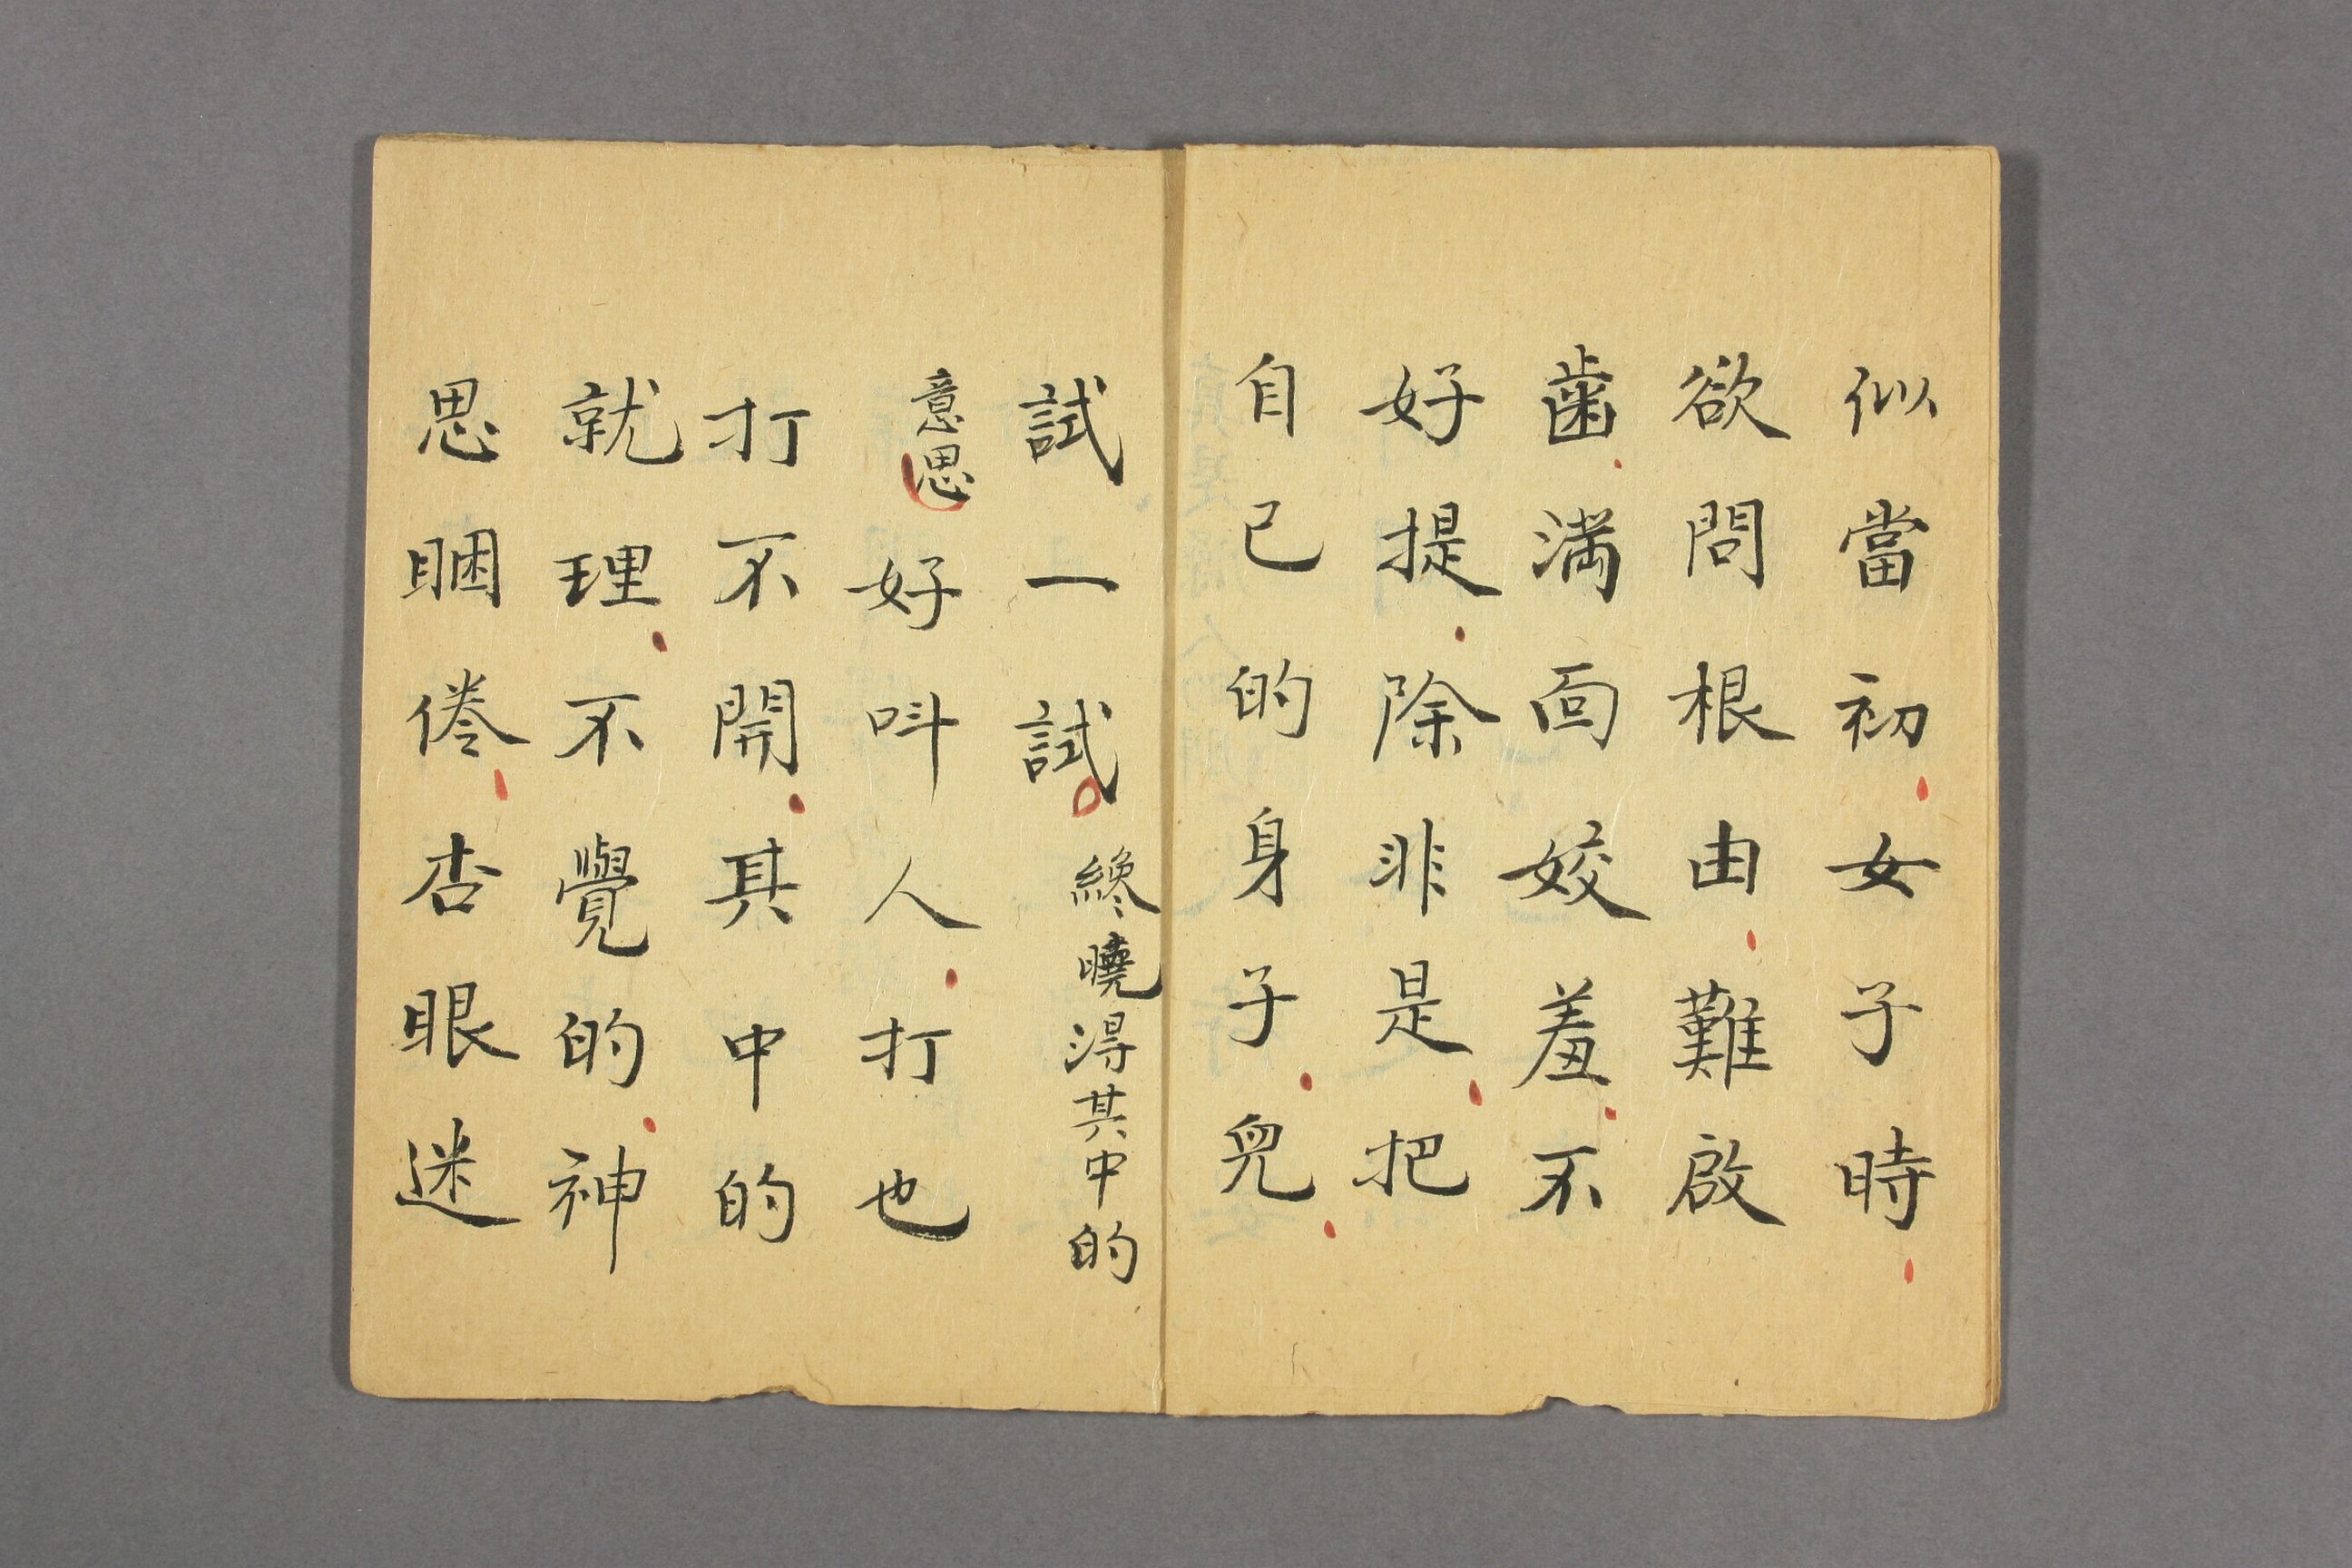 似當初女子時
欲問根由難啟
歯満面姣羞不
好提除非是把
自己的身子兒
試一試纔曉得其中的
意思好叫人打也
打不開其中的
就理不覺的神
思睏倦杏眼迷